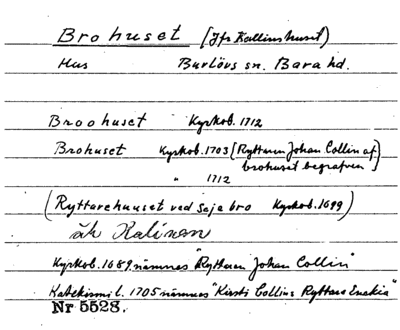 Brohuset (Jfr Kallinshuset)
Hus Burlövs sn. Bara hd.
Broohuset Kyrkob. 1712
Brohuset Kyrkob. 1703 [Ryttaren Johan Collin af
brohuset begrafven]
" 1712
(Ryttarehuuset ved Seje bro Kyrkob. 1699)
äk Kalinen
Kyrkob. 1689 nämnes "Ryttaren Johan Collin"
Katekismil. 1705 nämnes "Kirsti Collins Ryttare Enckia"
Nr 5528.